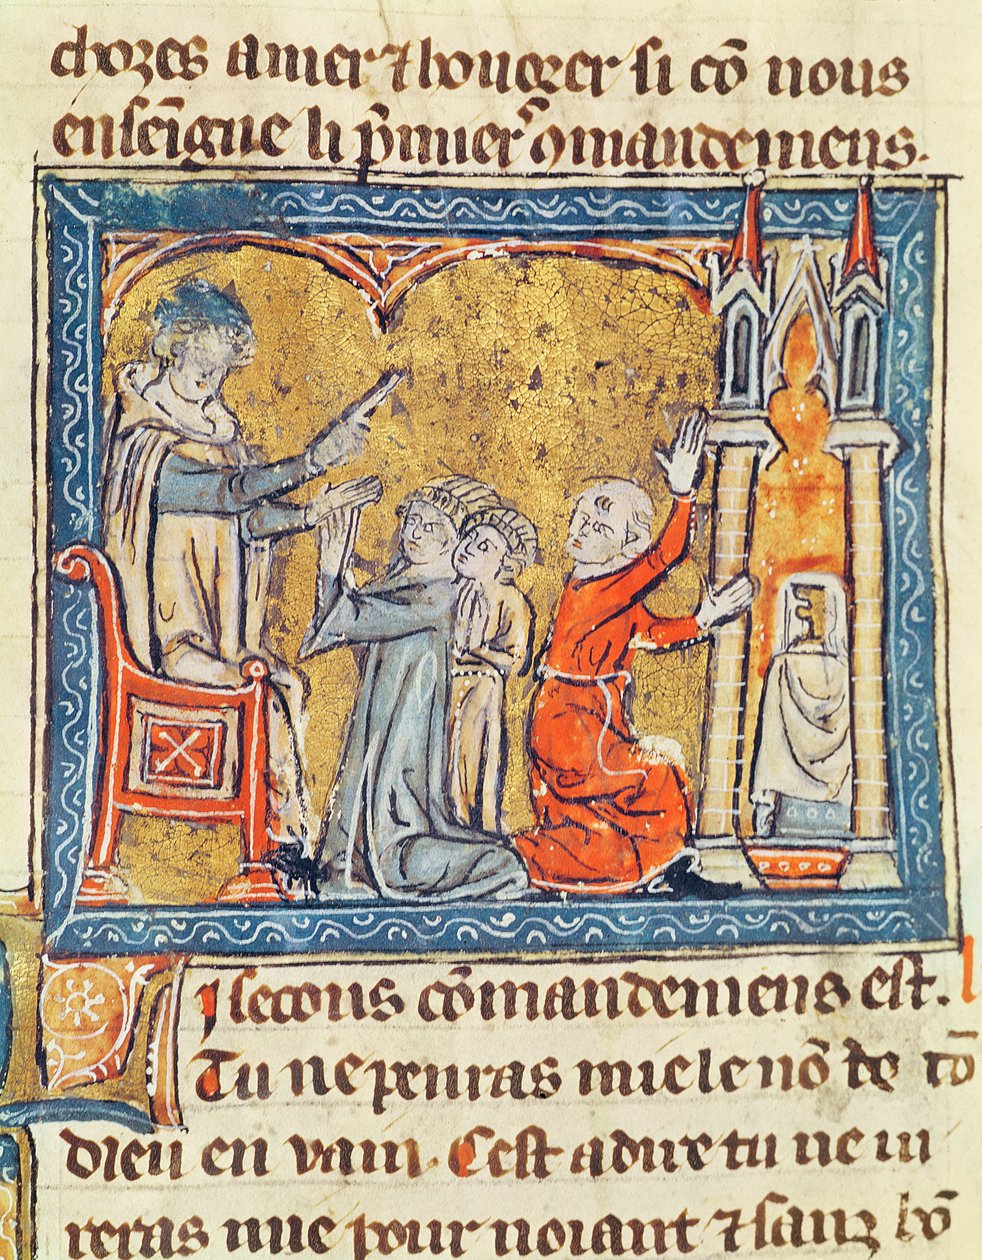 chozes amer ⁊ houĝer si cō nous
ensēigne li p̄mier ꝯmandemens.
I secons cōmandemens est.
Tu ne penras mie le nō de tō
dieu en vain. Cest adire tu ne iu
reras mie pour noiant ⁊ sanz bō